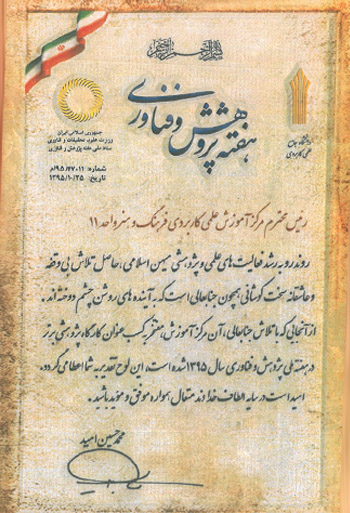 بسم الله الرحمن الرحیم
هفته پژوهش و فناوری
جمهوری اسلامی ایران
وزارت علوم، تحقیقات و فناوری
ستاد ملی هفته پژوهش و فناوری
دانشگاه جامع
علمی کاربردی
تاریخ: ۱۳۹۵/۱۰/۲۵
رئیس محترم مرکز آموزش علمی کاربردی فرهنگ و هنر واحد ۱۱
روند رو به رشد فعالیت های علمی و پژوهشی میهن اسلامی، حاصل تلاش بی وقفه
و عاشقانه سخت کوشانی، همچون جنابعالی است که به آینده های روشن چشم دوخته اند.
از آنجایی که با تلاش جنابعالی، آن مرکز آموزش، مفتخر به کسب عنوان کارگاه پژوهشی برتر
در هفته ملی پژوهش و فناوری سال ۱۳۹۵ شده است، این لوح تقدیر به شما اعطا می گردد.
امید است در سایه الطاف خداوند متعال همواره موفق و مؤید باشید.
محمد حسین امید